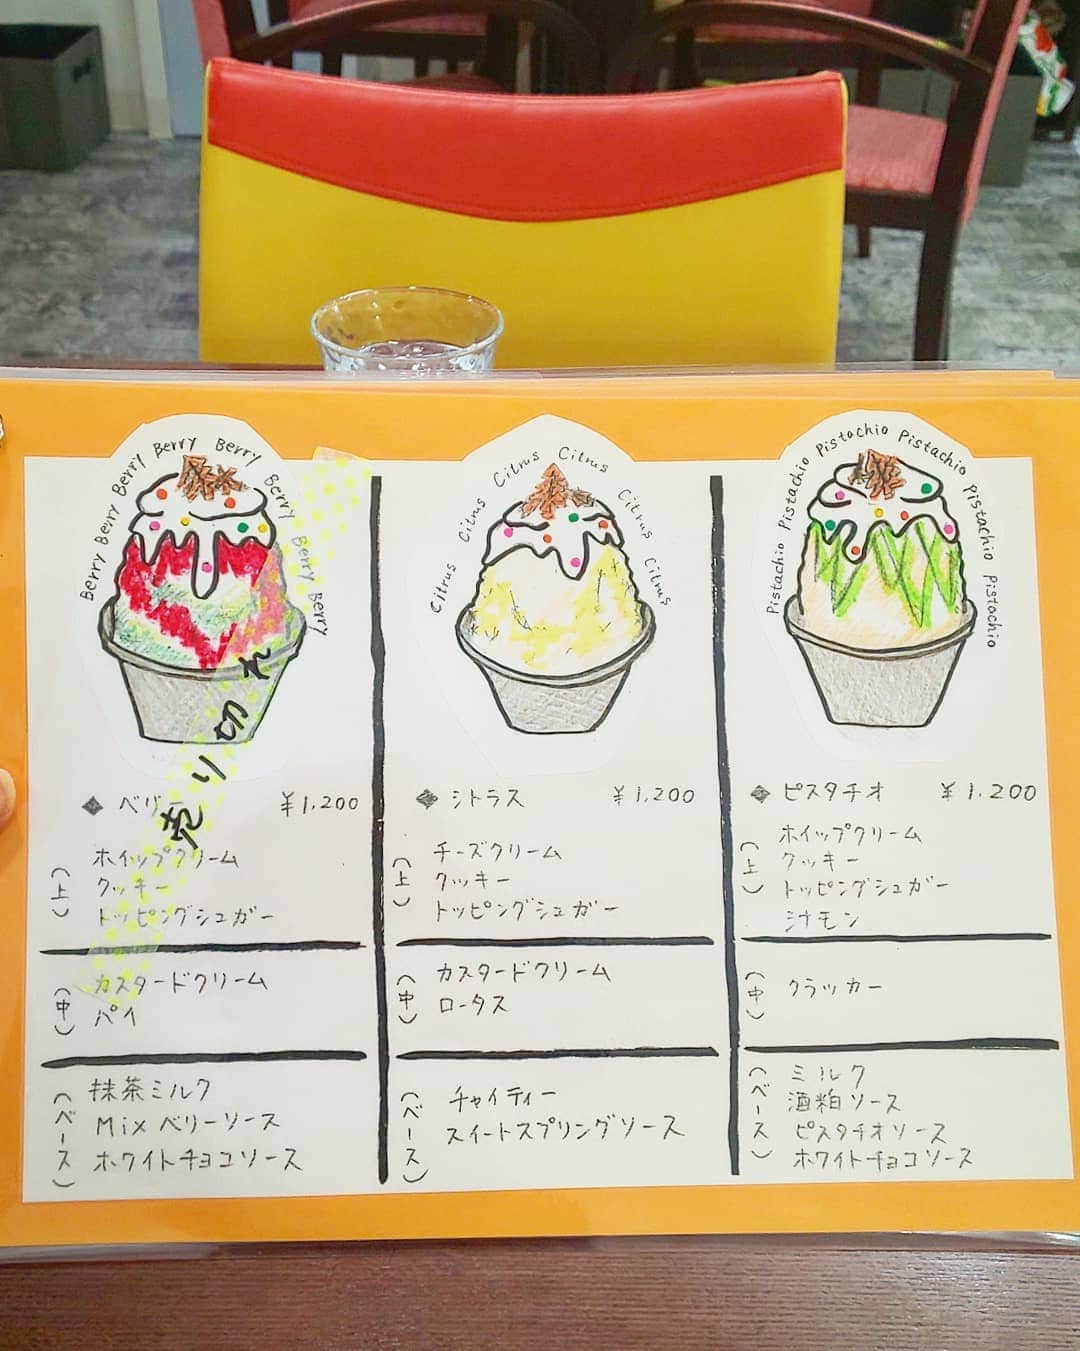 Berry Berry Berry Berry Berry Berry Berry Berry
売り切れ
◆ ベリー ¥1,200
(上)
ホイップクリーム
クッキー
トッピングシュガー
(中)
カスタードクリーム
パイ
(ベース)
抹茶ミルク
Mixベリーソース
ホワイトチョコソース
Citrus Citrus Citrus Citrus Citrus Citrus Citrus
◆ シトラス ¥1,200
(上)
チーズクリーム
クッキー
トッピングシュガー
(中)
カスタードクリーム
ロータス
(ベース)
チャイティー
スイートスプリングソース
Pistachio Pistachio Pistachio Pistachio Pistachio Pistachio
◆ ピスタチオ ¥1,200
(上)
ホイップクリーム
クッキー
トッピングシュガー
シナモン
(中)
クラッカー
(ベース)
ミルク
酒粕ソース
ピスタチオソース
ホワイトチョコソース